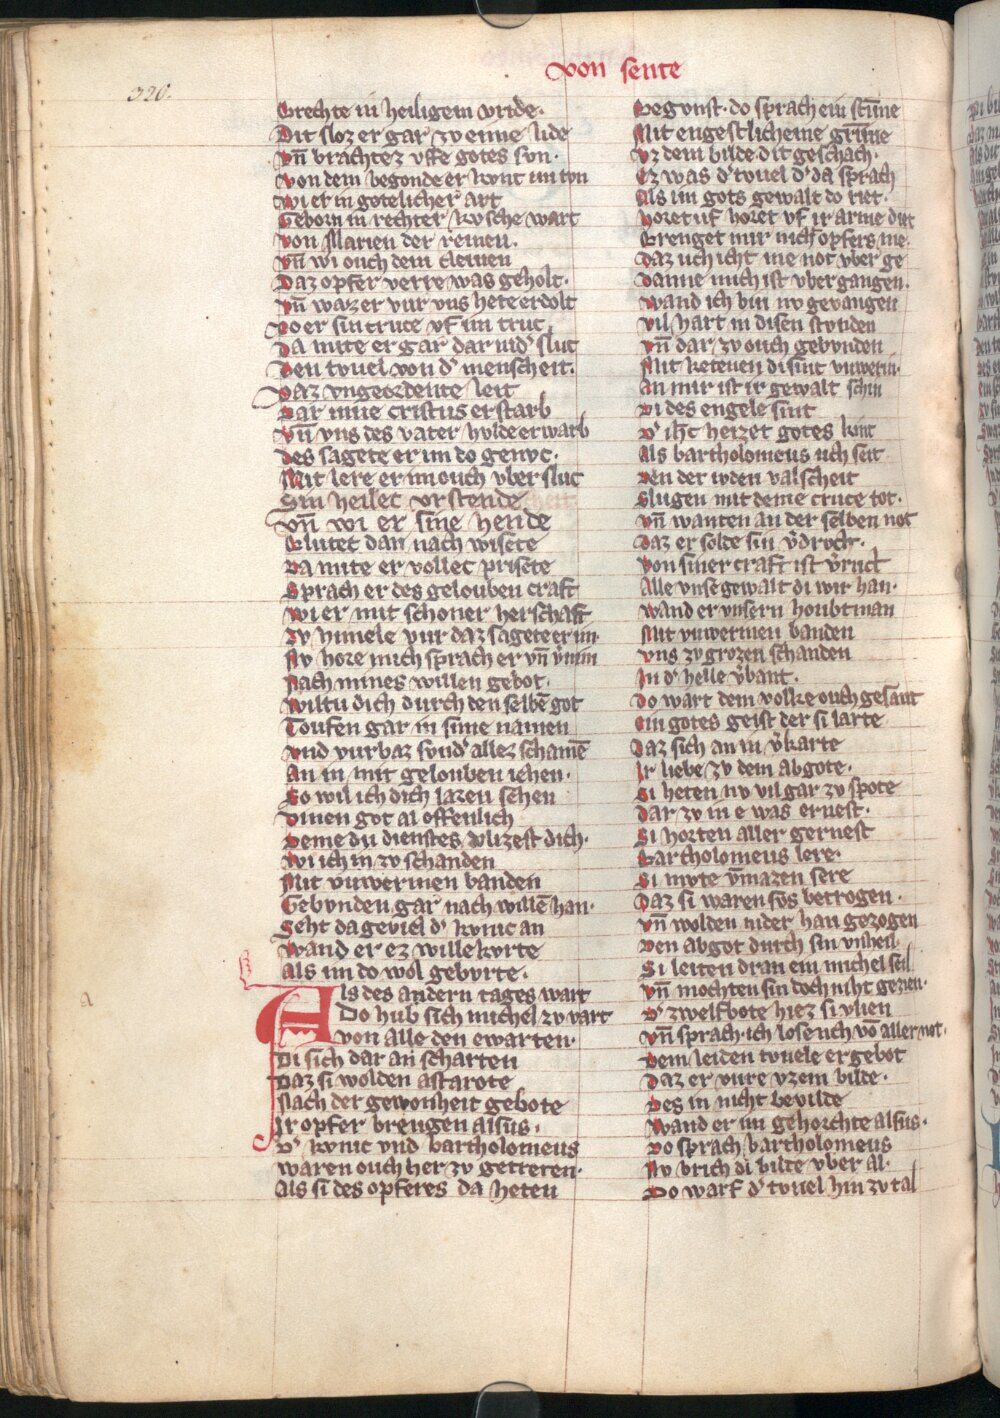 von sente
320.
Brechte in heiligem vride.
Dit sloz er gar zv eime lide
vn̄ brachtez vffe gotes svn.
von dem begonde er kvnt im tvn
wi er in gotelicher art
Geborn in rechter kvsche wart
von Marien der reinen.
vn̄ wi ouch dem cleinen
Daz opfer verre was geholt.
vn̄ waz er vur vns hete erdolt
do er sin cruce vf im truc
Da mite er gar dar nid' sluc
Den tvuel von d' menscheit.
Daz vngeordente leit
Dar inne cristus erstarb
vn̄ vns des vater hvlde erwarb
des sagete er im do genvc.
Mit lere er im ouch vber sluc
Sin heilec vrstende
vn̄ wi er sine hende
Blutet dan nach wisete
Da mite er vollec prisete
Sprach er des gelouben craft
wi er mit schoner herschaft
Zv himele vur daz sagete er im.
Nv hore mich sprach er vn̄ v̄nim
Nach mines willen gebot.
wiltu dich durch den selbē got
Toufen gar in sime namen
vnd vurbaz svnd' allez schamē
An in mit gelouben iehen.
So wil ich dich lazen sehen
Dinen got al offenlich
Deme du dienstes vlizest dich.
wi ich in zv schanden
Mit vnwermen banden
Gebvnden gar nach willē han.
Seht da geviel d' kvnic an
wand er ez willekvrte
Als im do wol gebvrte.
Als des andern tages wart
Do hub sich michel zv vart
von alle den ewarten.
Di sich dar an scharten
Daz si wolden astarote
Nach der gewonheit gebote
Ir opfer brengen alsus.
D' kvnic vnd bartholomeus
waren ouch her zv getreten.
Als si des opferes da heten
a
Begvnst. do sprach ein stīme
Mit engestlicheme grīme
vz dem bilde dit geschach.
Ez was d' tvuel d' da sprach
Als im gots gewalt do riet.
horet vf horet vf ir arme diet
Brenget mir nicht opfers me.
Daz uch icht me not vber ge
Danne mich ist vbergangen.
wand ich bin nv gevangen
vil hart in disen stvnden
vn̄ dar zv ouch gebvnden
Mit ketenen di sint vnwerin.
An mir ist ir gewalt schin
Di des engele sint
D' ih̄c heizet gotes kint
Als bartholomeus uch seit
Den der ivden valscheit
Slugen mit deme cruce tot.
vn̄ wanten an der selben not
Daz er solde sin v̄druct.
von siner craft ist v̄ruct
Alle vnse gewalt di wir han.
wand er vnsern houbtman
Mit vnwermen banden
vns zv grozen schanden
In d' helle v̄bant.
Do wart dem volke ouch gesant
ein gotes geist der si larte
Daz sich an in v̄karte
Ir liebe zv dem abgote.
Si heten nv vil gar zv spote
Dar zv in e was ernest.
Si horten aller gernest
Bartholomeus lere.
Si mvte v̄mazen sere
Daz si waren svs betrogen.
vn̄ wolden nider han gezogen
Den abgot durch sin vnheil
Si leiten dran ein michel seil
vn̄ mochten sin doch niht gezien.
D' zwelfbote hiez si vlien
vn̄ sprach. ich lose uch vō aller not.
Dem leiden tvuele er gebot
Daz er vure vzem bilde.
Des in nicht bevilde
Wand er im gehorchte alsus.
Do sprach bartholomeus
Nv brich di bilde vber al.
Do warf d' tvuel hin zv tal